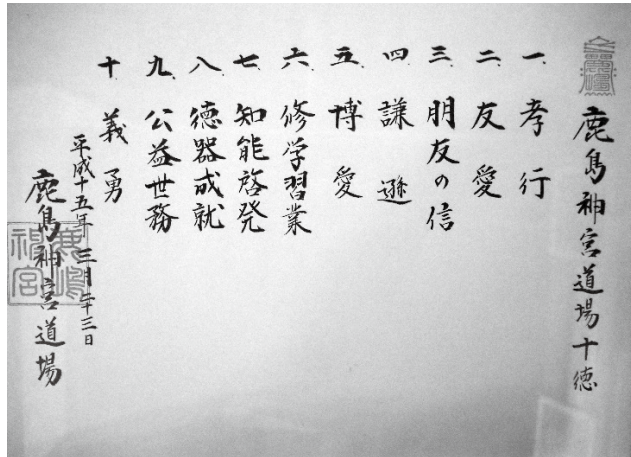 鹿島神宮道場十徳
一 孝行
二 友愛
三 朋友の信
四 謙遜
五 博愛
六 修学習業
七 知能啓発
八 徳器成就
九 公益世務
十 義勇
平成十五年 三月二十三日
鹿島神宮道場